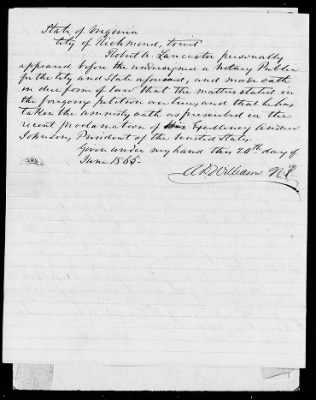 State of Virginia
City of Richmond, to wit
Robert A. Lancaster personally
appeared before the undersigned a Notary Public
for the City and State aforesaid, and made oath
in due form of law that the matters stated in
the foregoing petition are true, and that he has
taken the amnesty oath as prescribed in the
recent proclamation of his Excellency Andrew
Johnson, President of the United States.
Given under my hand this 20th day of
June 1865
Williams N.P.